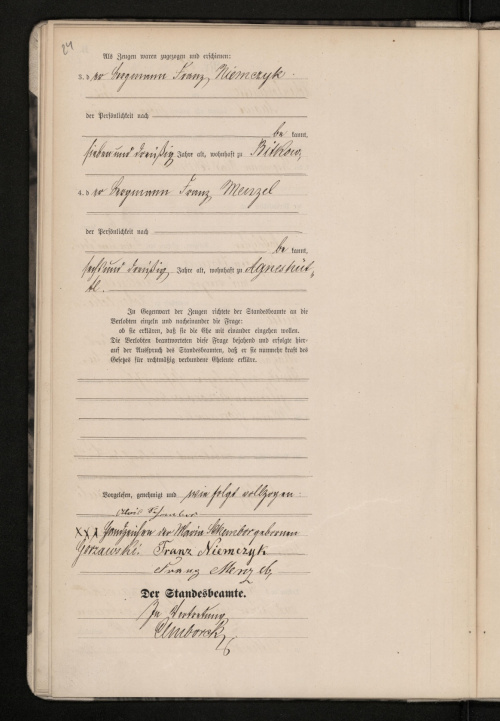 24
Als Zeugen waren zugezogen und erschienen:
3. der Bergmann Franz Niemczyk
der Persönlichkeit nach
be kannt,
sieben und dreißig Jahre alt, wohnhaft zu Bitkow,
4. der Bergmann Franz Menzel
der Persönlichkeit nach
be kannt,
sechs und dreißig Jahre alt, wohnhaft zu Agneshüt-
te.
In Gegenwart der Zeugen richtete der Standesbeamte an die
Verlobten einzeln und nacheinander die Frage:
ob sie erklären, daß sie die Ehe mit einander eingehen wollen.
Die Verlobten beantworteten diese Frage bejahend und erfolgte hier-
auf der Ausspruch des Standesbeamten, daß er sie nunmehr kraft des
Gesetzes für rechtmäßig verbundene Eheleute erkläre.
Vorgelesen, genehmigt und wie folgt vollzogen:
xxx Handzeichen der Maria geborenen
Franz Niemczyk
Franz Menzel
Der Standesbeamte.
In Vertretung